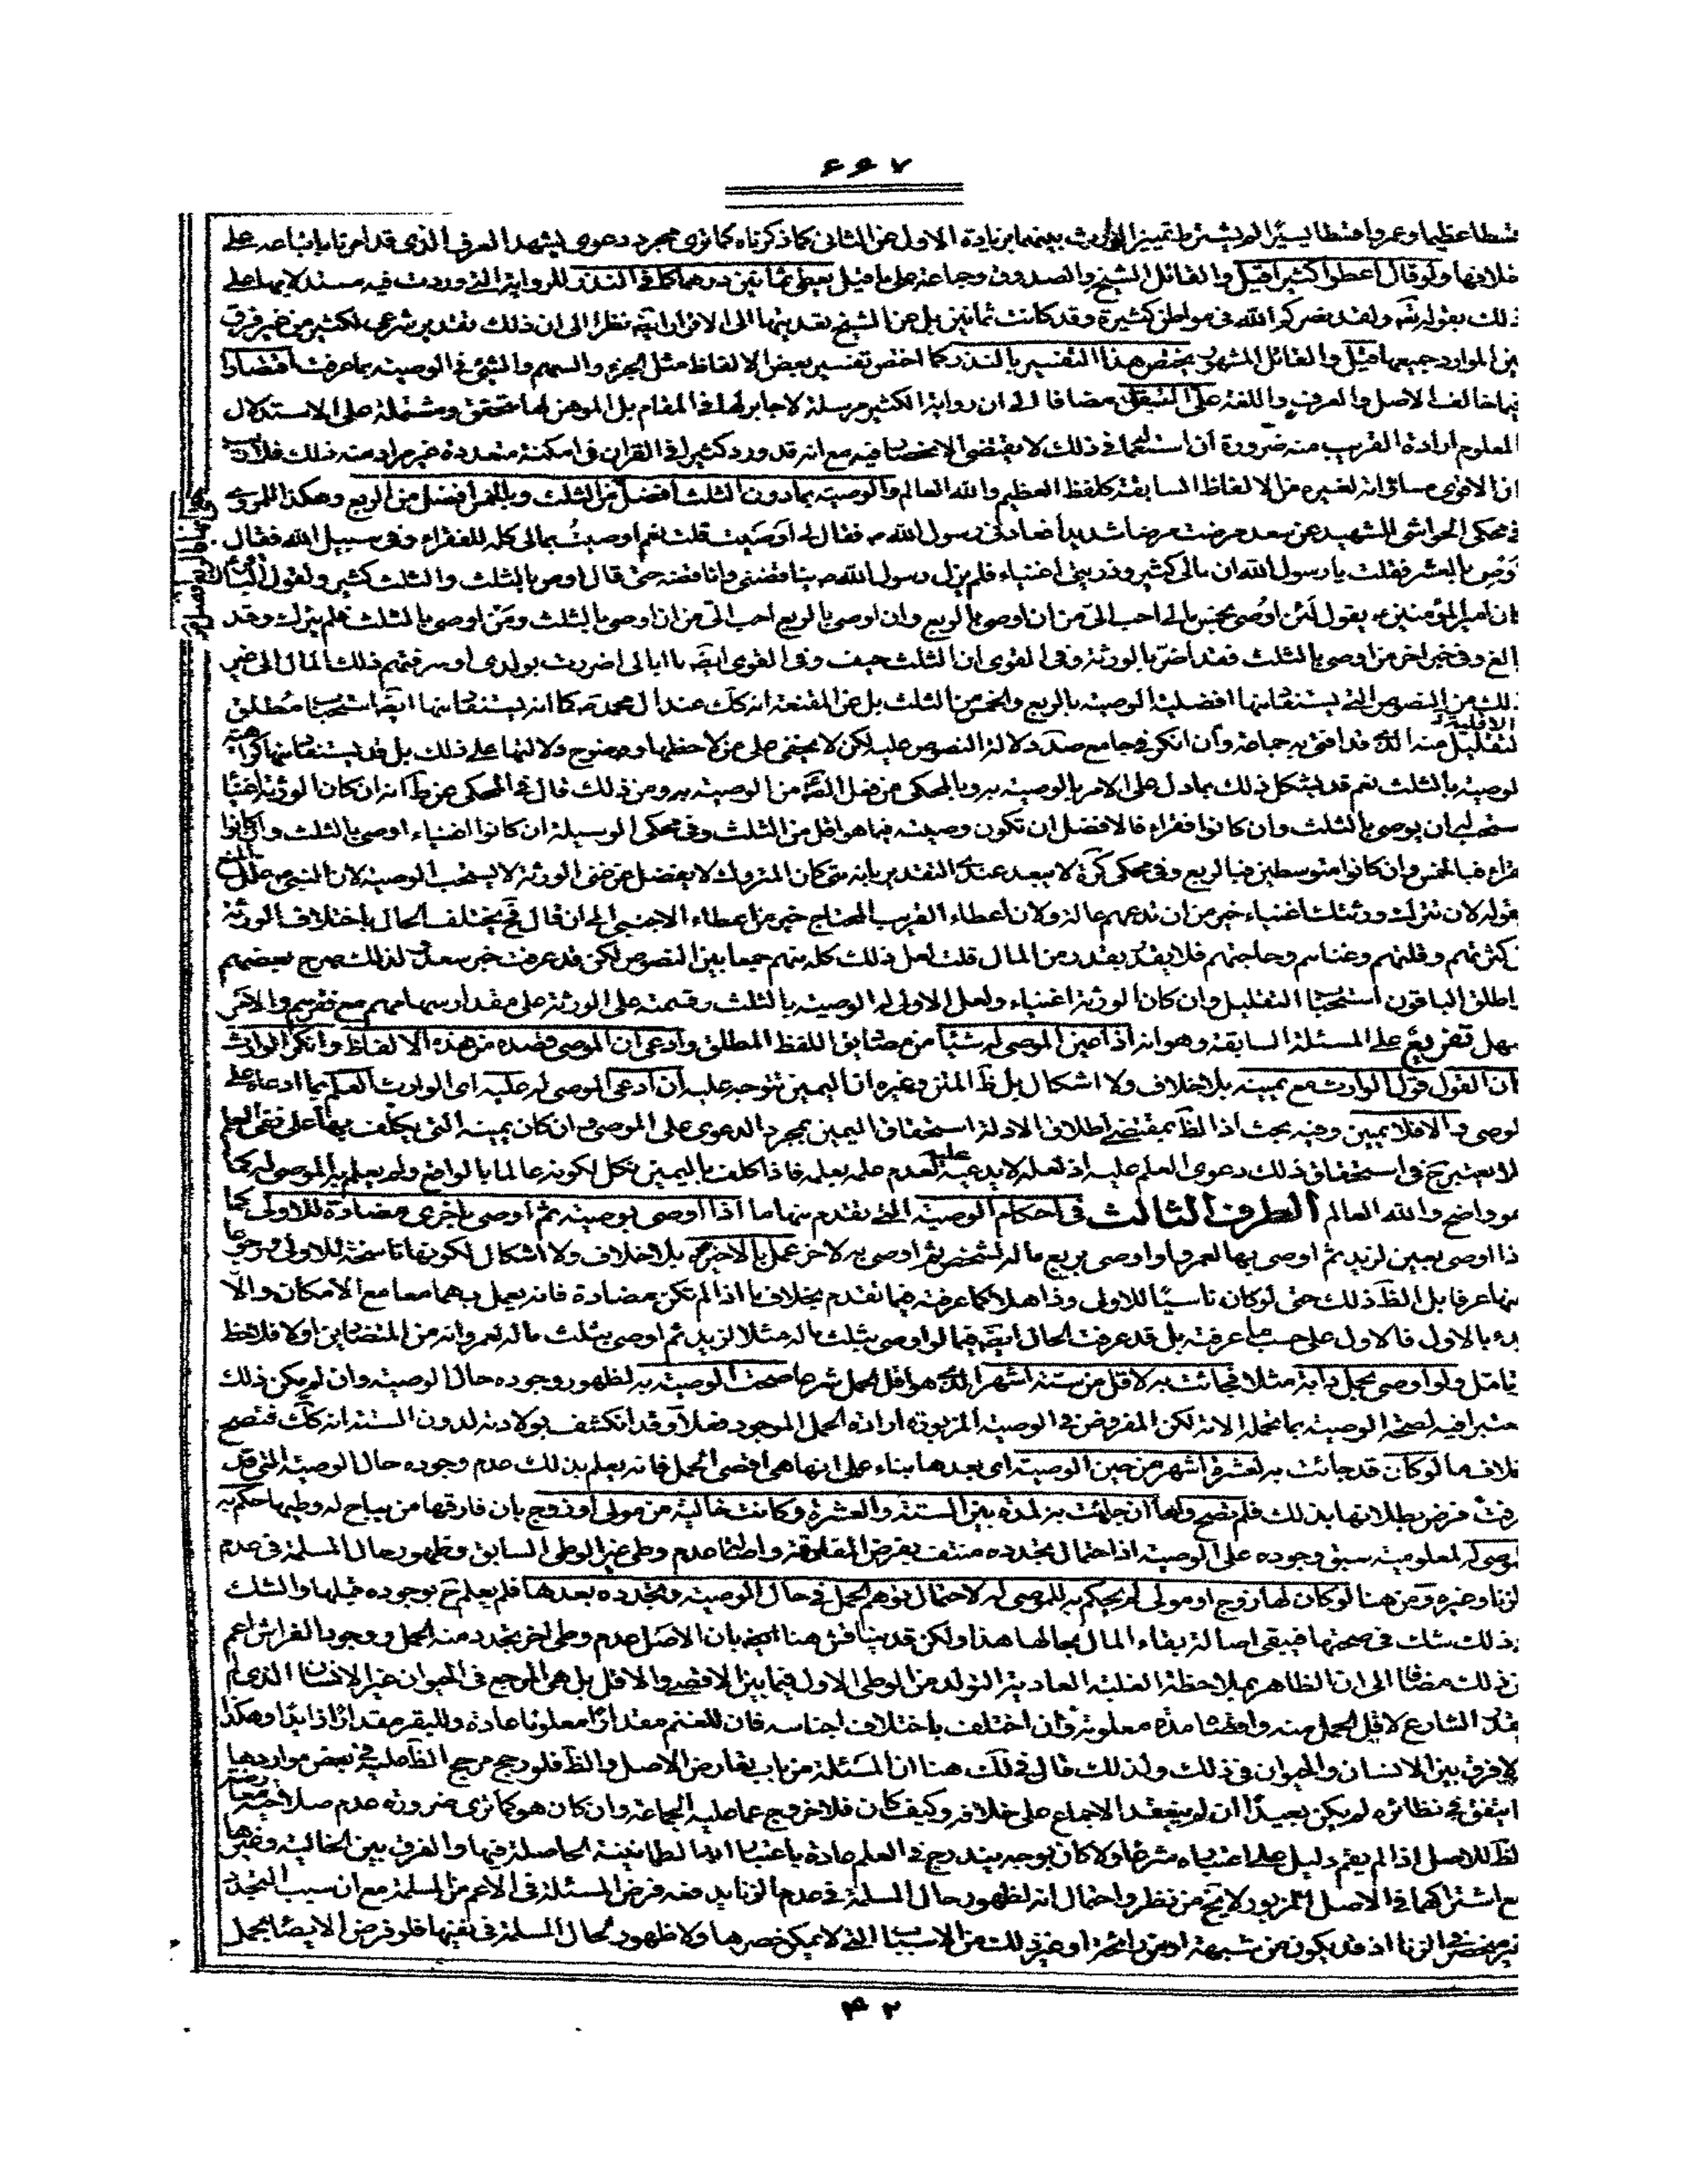 ۶۶۷
قسطا عظيما وعمروا قسطا يسيرا لم يشترط تمييز الوارث بينهما بزيادة الاول عن الثانى كما ذكرناه كما ترى مجرد دعوى يشهد العرف الذى قد امرنا باتباعه على
خلافها ولو قال اعطوا كثيرا قيل والقائل الشيخ والصدوق وجماعة على ما قيل يعطى ثمانين درهما كما فى النذر للرواية التى وردت فيه مستدلا بها على
ذلك بقوله تعه ولقد نصركم الله فى مواطن كثيرة وقد كانت ثمانين بل عن الشيخ تعديتها الى الاقرار ايضه نظرا الى ان ذلك تقدير شرعى لكثير من غير فرق
بين الموارد جميعها قيل والقائل المشهور يختص هذا التفسير بالنذر كما اختص تفسير بعض الالفاظ مثل الجزء والسهم والشئ فى الوصية بما عرفت اقتصارا
فيما خالف الاصل والعرف واللغة على المتيقن مضافا الى ان رواية الكثير مرسلة لا جابر لها فى المقام بل الموهن لها متحقق ومشتملة على الاستدلال
المعلوم ارادة التقريب منه ضرورة ان استعمالها فى ذلك لا يقتضى الانحصار فيه مع انه قد ورد كثيرا فى القران فى امكنة متعددة غير مراد منه ذلك فلا ريب
ان الاقوى مساواته لغيره من الالفاظ السابقة كلفظ العظيم والله العالم والوصية بما دون الثلث افضل من الثلث وبالخمس افضل من الربع وهكذا المروى
فى محكى الحواشى للشهيد عن سعد مرضت مرضا شديدا فعادنى رسول الله ص فقال لى اوصيت قلت نعم اوصيت بمالى كله للفقراء وفى سبيل الله فقال
اوص بالعشر فقلت يا رسول الله ان مالى كثير وذريتى اغنياء فلم يزل رسول الله ص يناقصنى واناقصه حتى قال اوص بالثلث والثلث كثير ولقول
ان امير المؤمنين ع يقول لئن اوصى بخمس مالى احب الى من ان اوصى بالربع وان اوصى بالربع احب الى من ان اوصى بالثلث ومن اوصى بالثلث فلم يترك وقد
بالغ وفى خبر اخر من اوصى بالثلث فقد اضر بالورثة وفى القوى ان الثلث حيف وفى القوى ايضه ما ابالى اضررت بولدى او سرقتهم ذلك المال الى غير
ذلك من النصوص التى يستفاد منها افضلية الوصية بالربع والخمس من الثلث بل عن المقنعة انه كك عند ال محمد ص كما انه يستفاد منها ايضا استحباب مطلق
التقليل منه الذى قد افتى به جماعة وان انكر فى جامع صد دلالة النصوص عليه لكن لا يخفى على من لاحظها وضوح دلالتها على ذلك بل قد يستفاد منها كراهة
الوصية بالثلث نعم قد يشكل ذلك بما دل على الامر بالوصية به وبالمحكى من فعل الائمة من الوصية به ومن ذلك قال فى المحكى عن ط انه ان كان الورثة اغنياء
يستحب له ان يوصى بالثلث وان كانوا فقراء فالافضل ان تكون وصيته فيما هو اقل من الثلث وفى محكى الوسيلة ان كانوا اغنياء اوصى بالثلث وان كانوا
فقراء فبالخمس وان كانوا متوسطين فبالربع وفى محكى كره لا يبعد عندى التقدير بانه متى كان المتروك لا يفضل عن غنى الورثة لا يستحب الوصية لان النبى ص علل المنع
بقوله لان تترك ورثتك اغنياء خير من ان تدعهم عالة ولان اعطاء القريب المحتاج خير من اعطاء الاجنبى الى ان قال فح يختلف الحال باختلاف الورثة
كثرتهم وقلتهم وغناهم وحاجتهم فلا يقدر بقدر من المال قلت لعل ذلك كله منهم جمعا بين النصوص لكن قد عرفت خبر سعد لذلك صرح بعضهم
اطلق الباقون استحباب التقليل وان كان الورثة اغنياء ولعل الاولى له الوصية بالثلث وقسمته على الورثة على مقدار سهامهم مع فقرهم والامر
سهل تفريع على المسئلة السابقة وهو انه اذا عين الموصى له شيئا من مصاديق اللفظ المطلق وادعى ان الموصى قصده من هذه الالفاظ وانكر الوارث
ان القول قول الوارث مع يمينه بلا خلاف ولا اشكال بل ظ المتن وغيره ان اليمين تتوجه عليه ان ادعى الموصى له عليه اى الوارث العلم بما ادعاه على
الموصى والا فلا يمين وفيه بحث اذ الظ بمقتضى اطلاق الادلة استحقاق اليمين بمجرد الدعوى على الموصى وان كان يمينه التى يحلف بها على نفى العلم
لا يعتبر ح فى استحقاق ذلك دعوى العلم عليه اذ لعله لا يدعيه عليه لعدم علمه بعلمه فاذا كلف باليمين نكل لكونه عالما بالواقع ولم يعلم به الموصى له كما
هو واضح والله العالم الطرف الثالث فى احكام الوصية التى تقدم منها ما اذا اوصى بوصية ثم اوصى باخرى مضادة للاولى كما
اذا اوصى بعين لزيد ثم اوصى بها لعمرو او اوصى بربع ماله لشخص ثم اوصى به لاخر عمل بالاخيرة بلا خلاف ولا اشكال لكونها ناسخة للاولى ورجوعا
عنها عرفا بل الظ ذلك حتى لو كان ناسيا للاولى وذاهلا كما عرفته فيما تقدم بخلاف ما اذا لم تكن مضادة فانه يعمل بهما معا مع الامكان والا
بدء بالاول فالاول على حسب ما عرفته بل قد عرفت الحال ايضه فيما لو اوصى بثلث ماله مثلا لزيد ثم اوصى بثلث ماله لعمرو انه من المتضادين اولا فلاحظ
وتامل ولو اوصى بحمل دابة مثلا فجائت به لاقل من ستة اشهر الذى هو اقل الحمل شرعا صحت الوصية به لظهور وجوده حال الوصية وان لم يكن ذلك
معتبرا فيه لصحة الوصية بما تحمله الامة لكن المفروض فى الوصية المزبورة ارادة الحمل الموجود فعلا وقد انكشف بولادته لدون الستة انه كك فتصح
بخلاف ما لو كان قد جائت به لعشرة اشهر من حين الوصية اى بعدها بناء على انها هى اقصى الحمل فانه يعلم بذلك عدم وجوده حال الوصية التى قد
عرفت فرض بطلانها بذلك فلم تصح واما ان جائت به لمدة بين الستة والعشرة وكانت خالية من مولى او زوج بان فارقها من يباح له وطيها حكم به
للموصى له لمعلومية سبق وجوده على الوصية اذ احتمال تجدده منتف بفرض المفارقة واصالة عدم وطى غير الوطى السابق وظهور حال المسلمة فى عدم
الزنا وغيره ومن هنا لو كان لها زوج او مولى لم يحكم به للموصى له لاحتمال توهم الحمل فى حال الوصية وتجدده بعدها فلم يعلم ح بوجوده قبلها والشك
بذلك شك فى صحتها فيبقى اصالة بقاء المال بحالها هذا ولكن قد يناقش هنا ايضه بان الاصل عدم وطى اخر يتجدد منه الحمل ووجود الفراش اعم
من ذلك مضافا الى ان الظاهر بملاحظة الغلبة العادية التولد من الوطى الاول فيما بين الاقصى والاقل بل هى المرجع فى الحيوان غير الانسان الذى لم
يقدر الشارع لاقل الحمل منه واقصاه مدة معلومة وان اختلف باختلاف اجناسه فان للغنم مقدارا معلوما عادة وللبقر مقدارا زايدا وهكذا
لا فرق بين الانسان والحيوان فى ذلك ولذلك قال فى لك هنا ان المسئلة من باب تعارض الاصل والظ فلو رجح مرجح الظ عليه فى بعض مواردها
اتفق فى نظائره لم يكن بعيدا ان لم ينعقد الاجماع على خلافه وكيف كان فلا خروج عما عليه الجماعة وان كان هو كما ترى ضرورة عدم صلاحية معارضة
الظ للاصل اذا لم يقم دليل على اعتباره شرعا ولا كان بوجه يندرج فى العلم عادة باعتبار الطمانينة الحاصلة فيها والفرق بين الخالية وغيرها
مع اشتراكهما فى الاصل المزبور لا يخ من نظر واحتمال انه لظهور حال المسلمة فى عدم الزنا يدفعه فرض المسئلة فى الاعم من المسلمة مع ان سبب التجدد
غير منحصر فى الزنا اذ قد يكون من شبهة او من نائمة او غير ذلك من الاسباب التى لا يمكن حصرها ولا ظهور لحال المسلمة فى نفيها فلو فرض الايصاء بحمل
۴۲